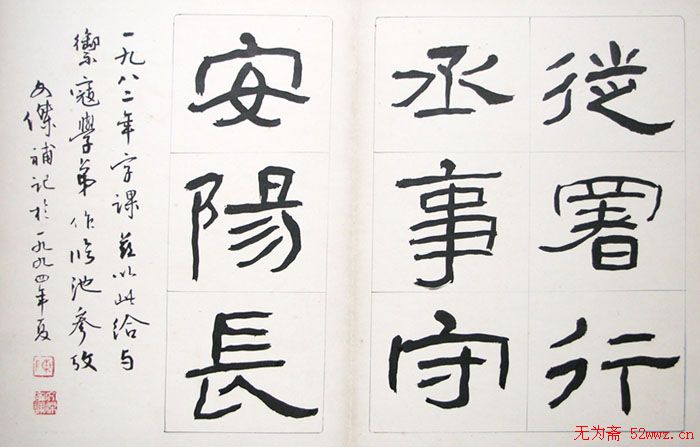 從署行
丞事守
安陽長
一九八二年字课兹以此给与
禦寇學弟作临池参考
文傑補记於一九九四年夏
无为斋 52wwz.cn